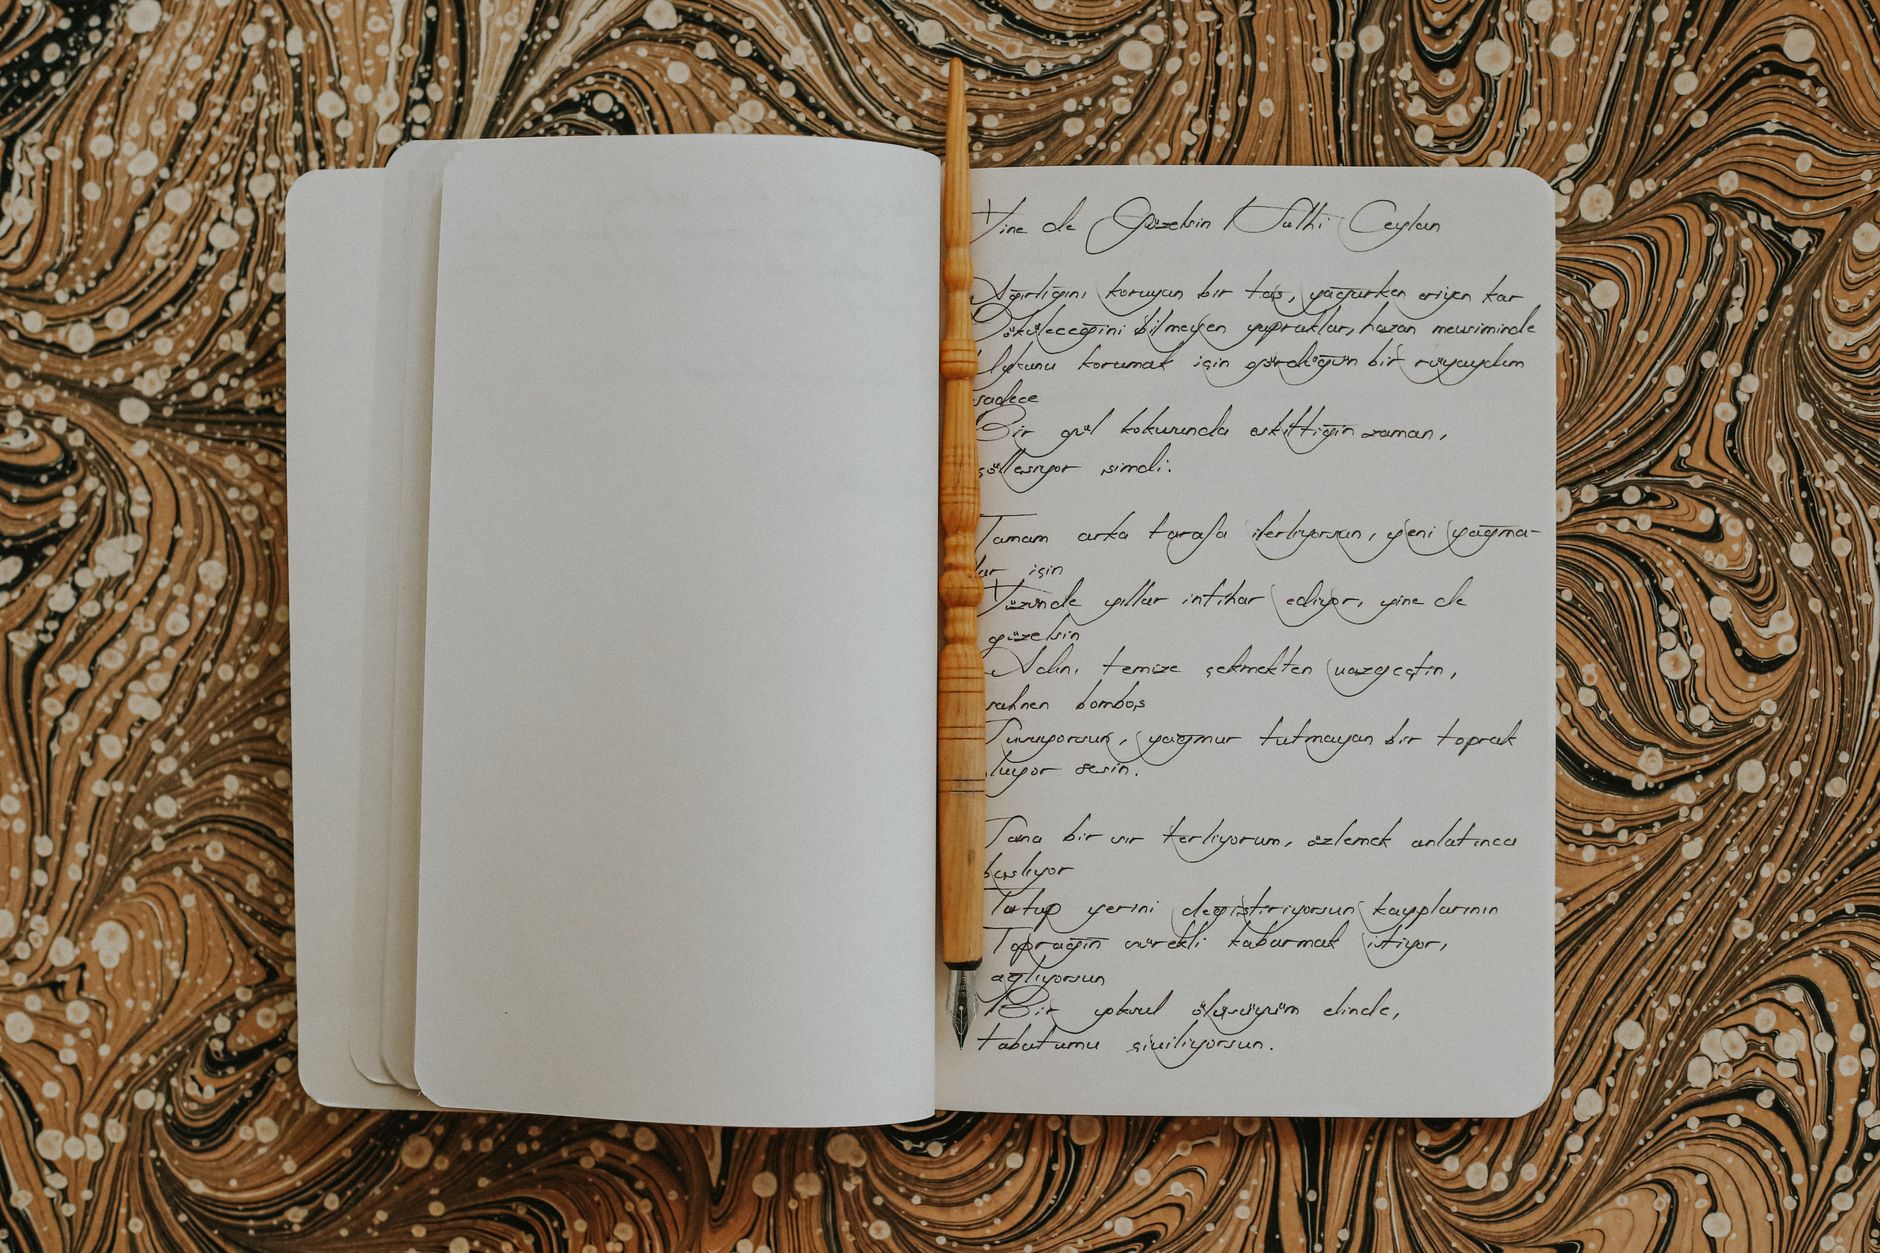 Yine de Güzelsin Kulthi Ceylan
Ağırlığını koruyan bir taş, yağarken eriyen kar
Döküleceğini bilmeyen yapraklar, hazan mevsiminde
Uykunu korumak için gördüğün bir rüyaydım
sadece
Bir gül kokusunda eskittiğin zaman,
çölleşiyor şimdi.
Tamam arka tarafa ilerliyorsun, yeni yağma-
lar için
Yüzünde yıllar intihar ediyor, yine de
güzelsin
Adını temize çekmekten vazgeçtin,
sahnen bomboş
Susuyorsun, yağmur tutmayan bir toprak
oluyor sesin.
Sana bir sır terliyorum, özlemek anlatınca
başlıyor
Tutup yerini değiştiriyorsun kayıplarının
Toprağın sürekli kabarmak istiyor,
ağlıyorsun
Bir yoksul ölüsüyüm elinde,
tabutumu çiviliyorsun.